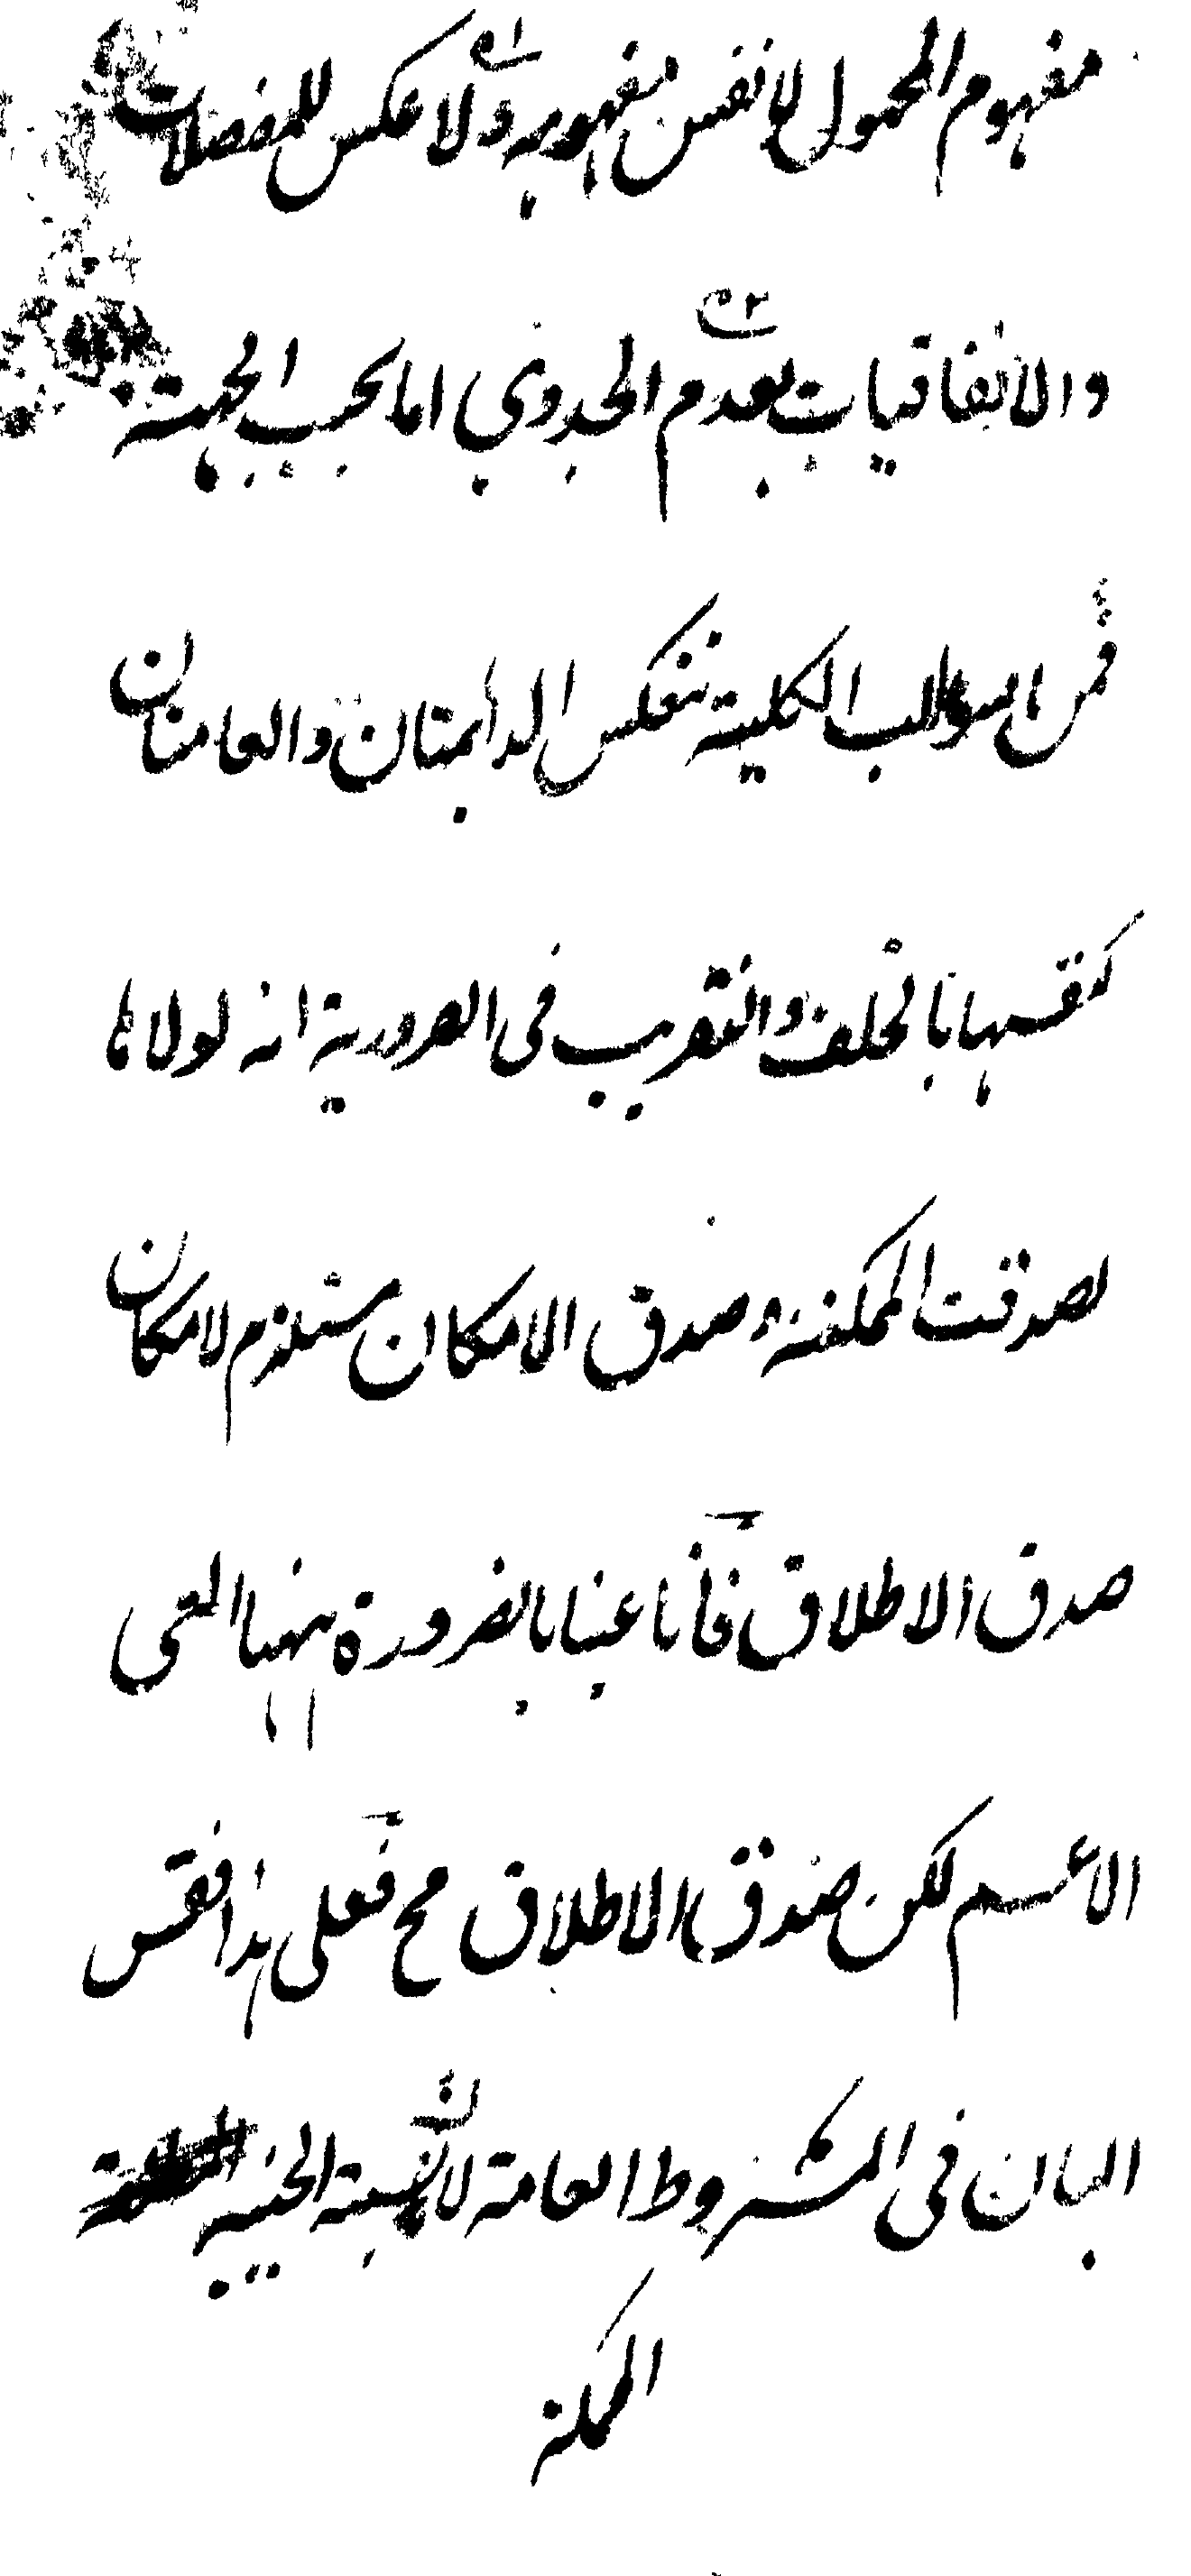 مفهوم المحمول لا نفس مفهومه ولا عكس للمنفصلات
والاتفاقيات لعدم الجدوي اما بحسب الجهة
فمن السوالب الكلية تنعكس الدائمتان والعامتان
كنفسها بالخلف والتقريب فى الضرورية انه لولاها
لصدقت الممكنة وصدق الامكان مستلزم لامكان
صدق الاطلاق فانا عنينا بالضرورة ههنا المعنى
الاعم لكن صدق الاطلاق مح فعلى هذا فقس
البيان فى المشروط العامة لا نسبة الحينية
الممكنة